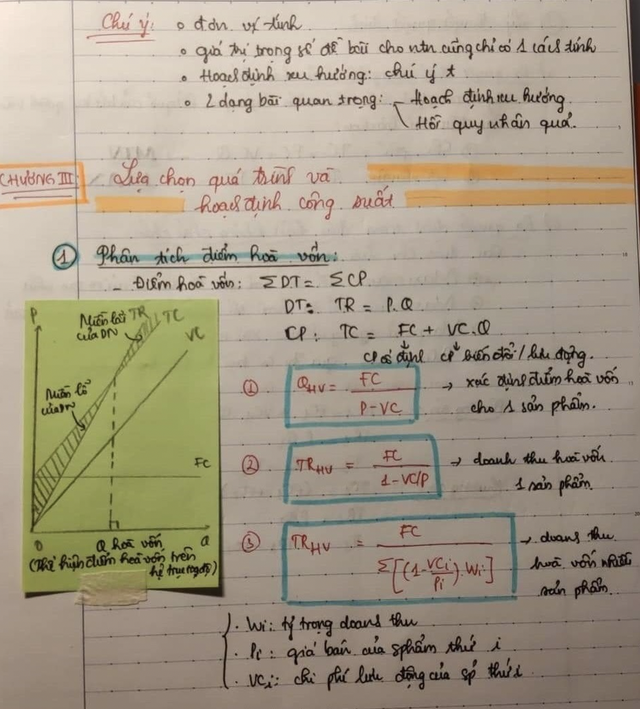 Chú ý: • đơn vị tính
• giá trị trọng số đề bài cho ntn cũng chỉ có 1 cách tính
• Hoạch định xu hướng: chú ý t
• 2 dạng bài quan trọng: - Hoạch định xu hướng
Hồi quy nhân quả.
CHƯƠNG III: Lựa chọn quá trình và
hoạch định công suất
① Phân tích điểm hoà vốn:
- Điểm hoà vốn: ΣDT = ΣCP.
DT: TR = P.Q
CP: TC = FC + VC.Q
CP cố định CP biến đổi / lưu động.
① Q_HV = FC / (P - VC) → xác định điểm hoà vốn
cho 1 sản phẩm.
② TR_HV = FC / (1 - VC/P) → doanh thu hoà vốn
1 sản phẩm.
③ TR_HV = FC / Σ[(1 - VCi/Pi).Wi] → doanh thu
hoà vốn nhiều
sản phẩm.
• Wi: tỷ trọng doanh thu
• Pi: giá bán của sphẩm thứ i
• VCi: chi phí lưu động của sp thứ i
P
Miền lãi
của DN
TR
TC
VC
Miền lỗ
của DN
FC
0
Q hoà vốn
Q
(Thể hiện điểm hoà vốn trên
hệ trục tọa độ)